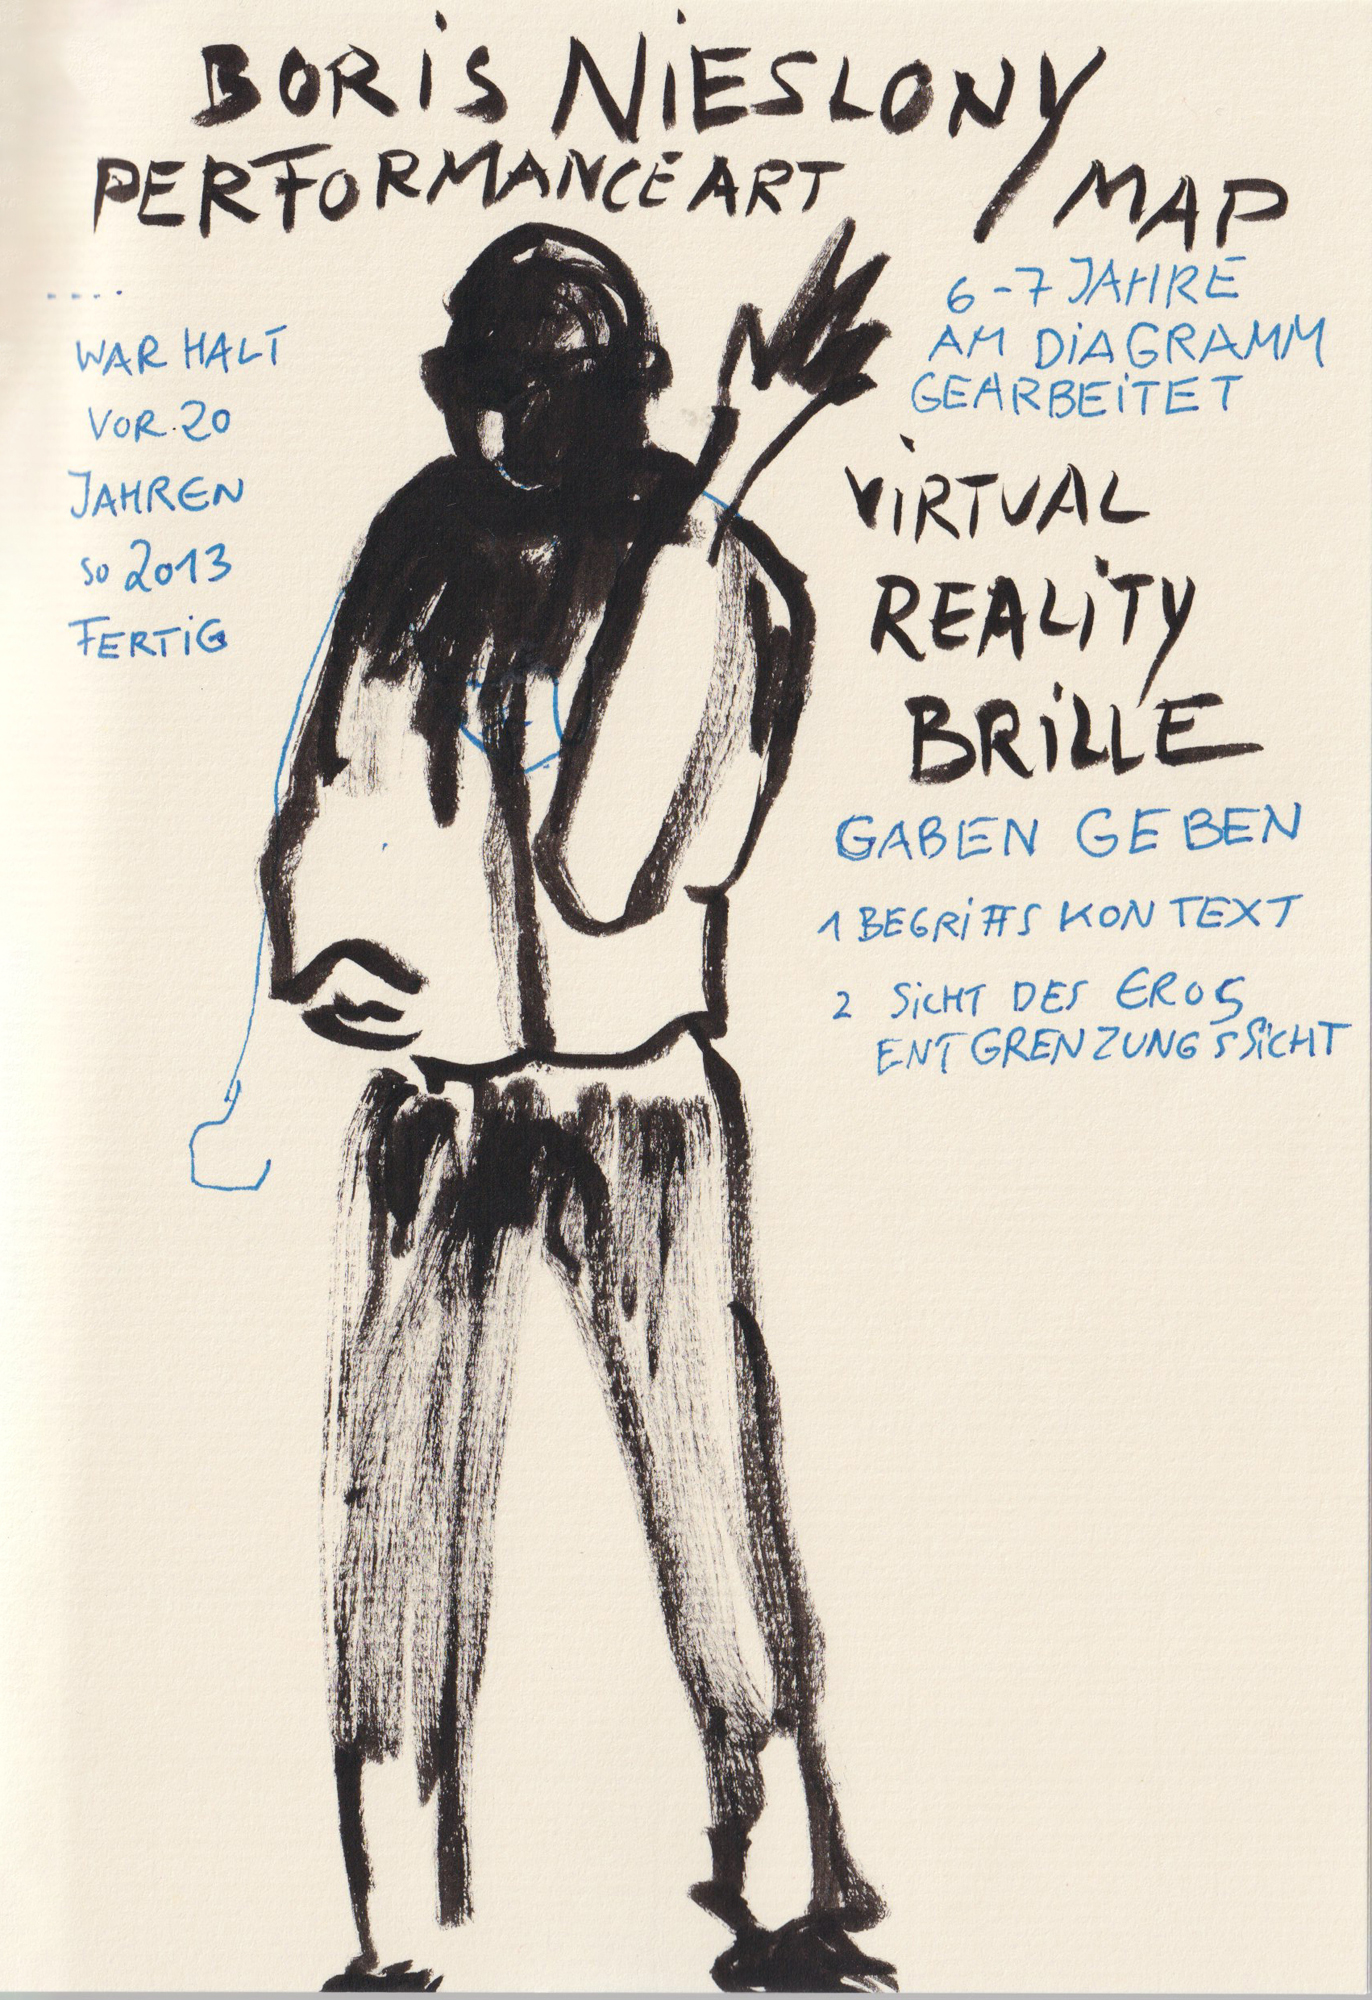 BORIS NIESLONY
PERFORMANCE ART MAP
....
WAR HALT
VOR 20
JAHREN
SO 2013
FERTIG
6-7 JAHRE
AM DIAGRAMM
GEARBEITET
VIRTUAL
REALITY
BRILLE
GABEN GEBEN
1 BEGRIFFS KONTEXT
2 SICHT DES EROS
ENTGRENZUNGSSICHT